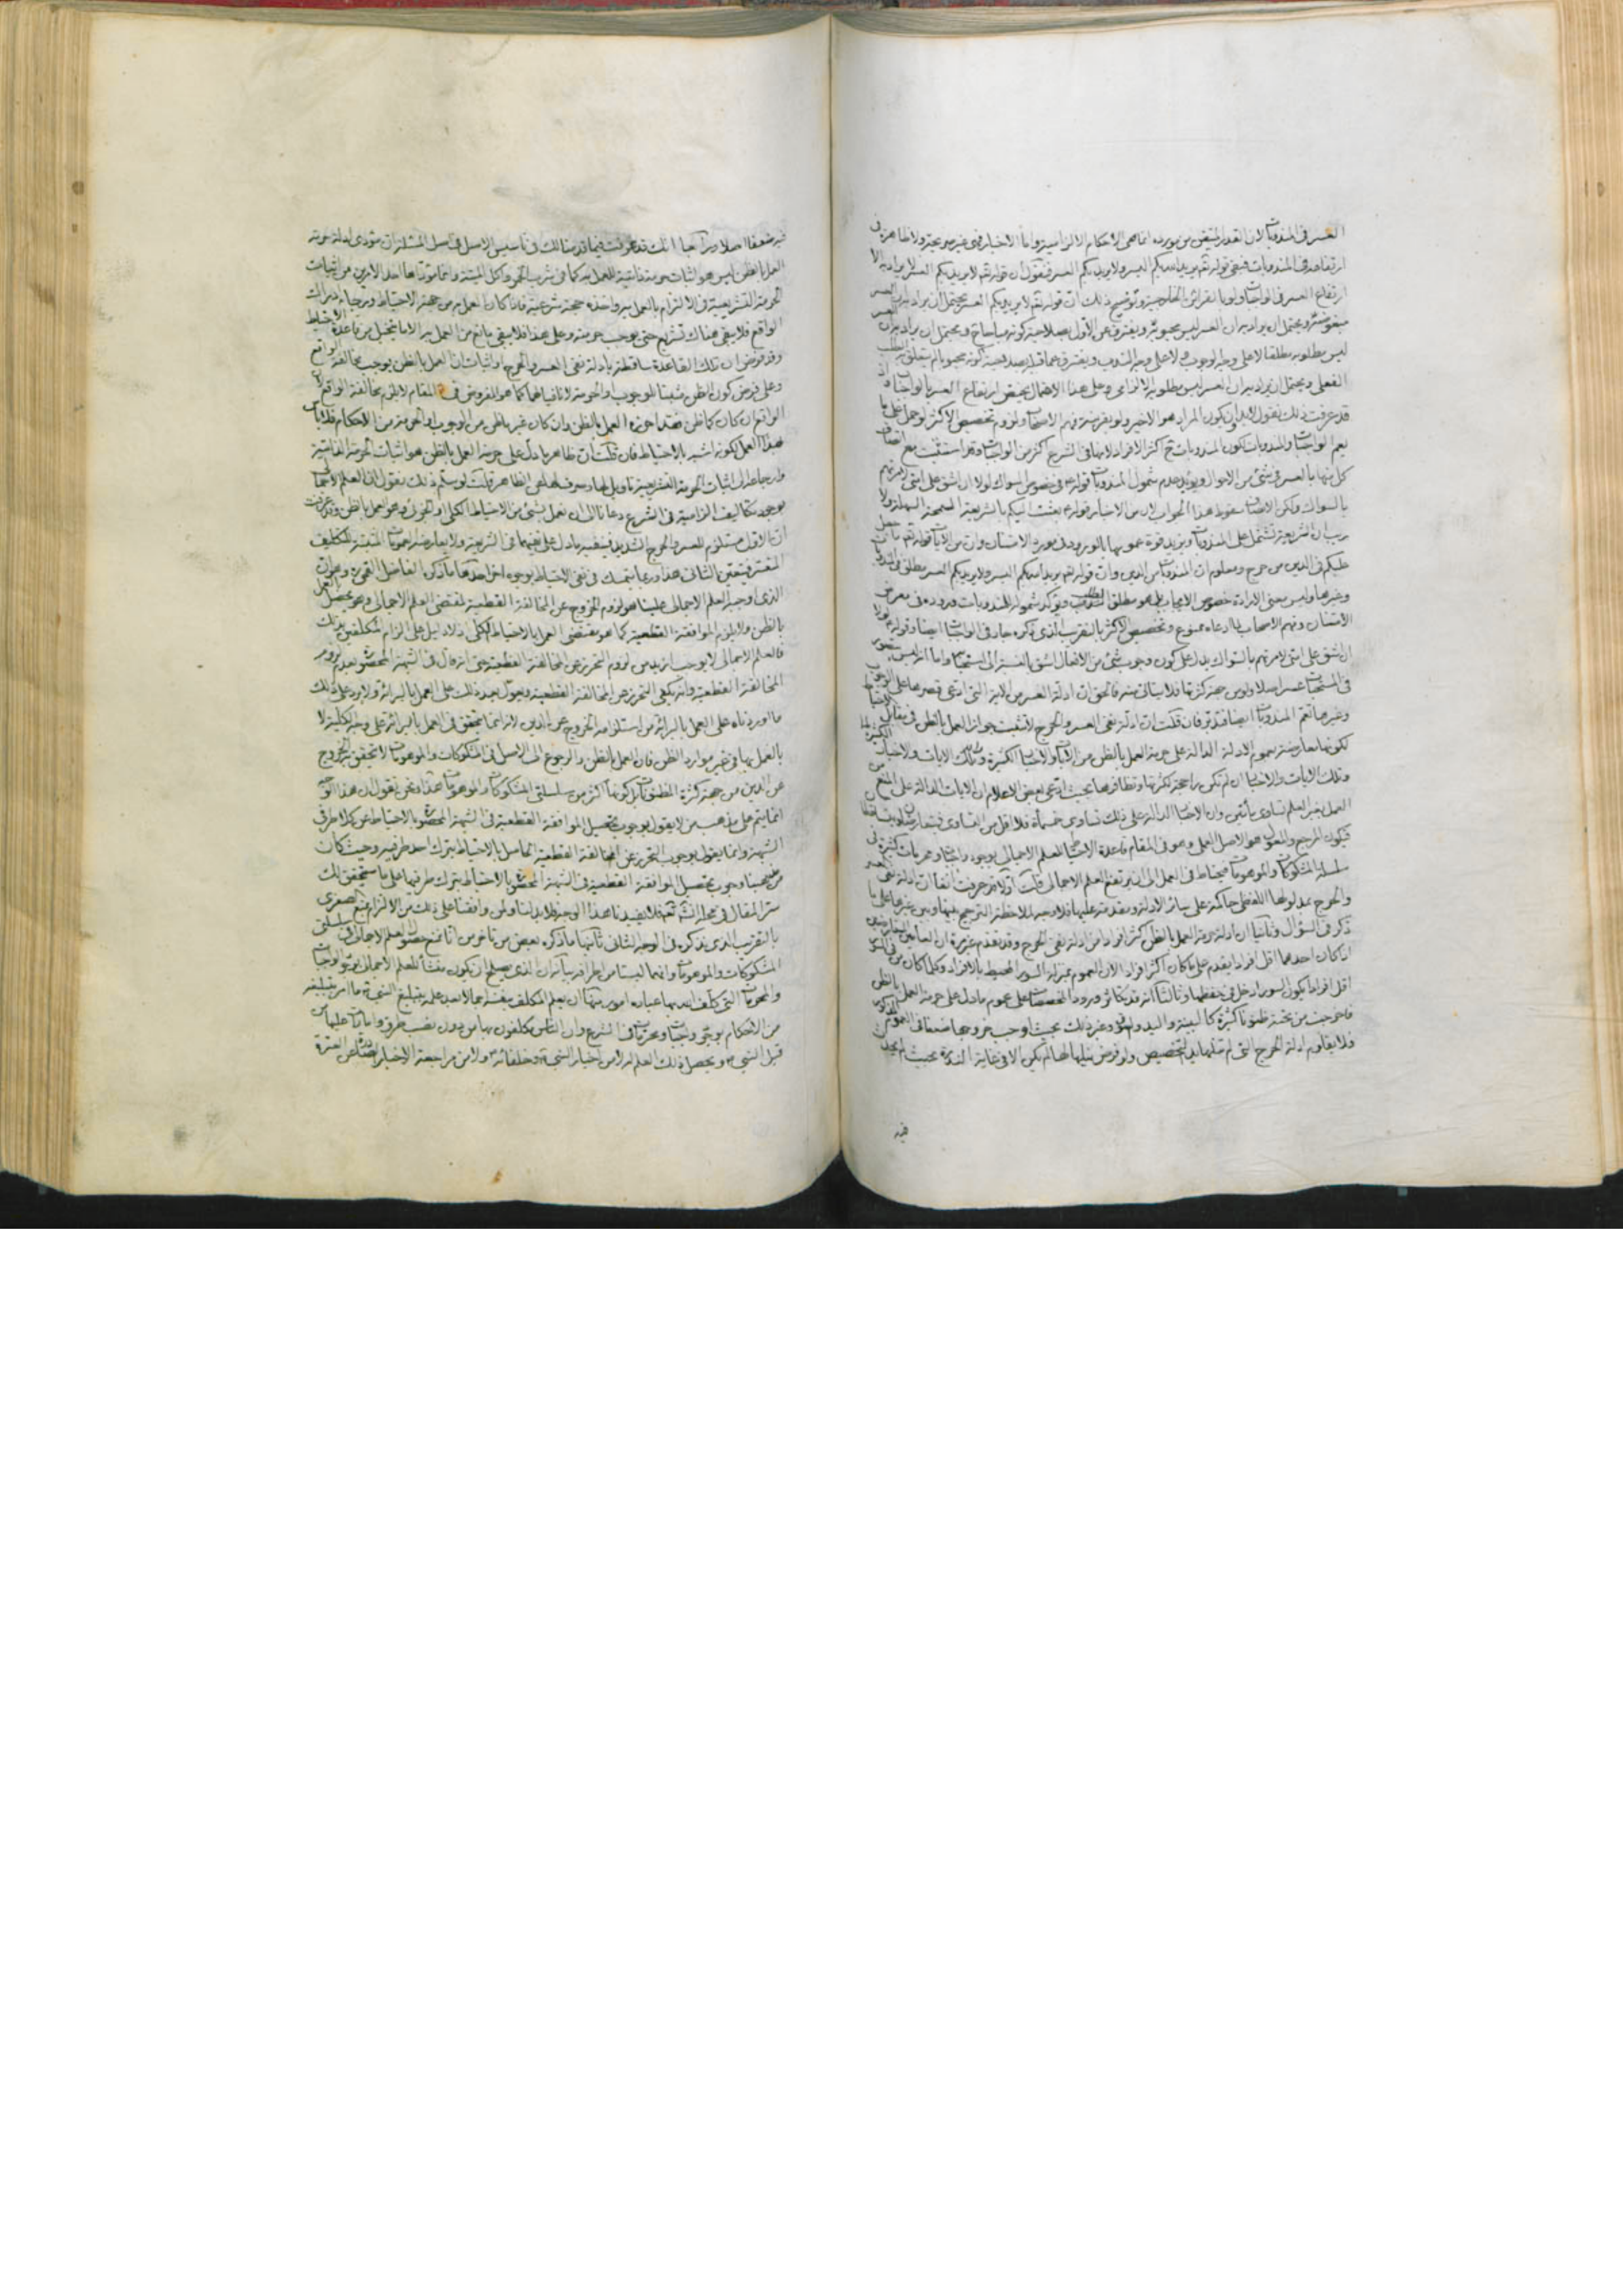 العسر فى المندوبات لان القدر المتيقن من مورده انما هى الاحكام الالزامية واما الاخبار فهى غير صريحة ولا ظاهرة فى
ارتفاعه فى المندوبات فبقى قوله تعم يريد الله بكم اليسر ولا يريد بكم العسر فنقول ان قوله تعم لا يريد بكم العسر لا يراد به الا
ارتفاع العسر فى الواجبات ولو بالقرائن الخارجية وتوضيح ذلك ان قوله تعم لا يريد بكم العسر يحتمل ان يراد به ان العسر
مبغوض ويحتمل ان يراد به ان العسر ليس بمحبوب ويفترق عن الاول بصلاحية كونه مباحا ويحتمل ان يراد به ان العسر
ليس بمطلوب مطلقا لا على وجه الوجوب ولا على وجه الندب ويفترق عما قبله بصلاحية كونه محبوبا لم يتعلق به الطلب
الفعلى ويحتمل ان يراد به ان العسر ليس بمطلوب الالزامى وعلى هذا الاحتمال يختص ارتفاع العسر بالواجبات اذا
قد عرفت ذلك نقول لابد ان يكون المراد هو الاخير ولو بقرينة فهم الاصحاب ولزوم تخصيص الاكثر لو حمل على ما
يعم الواجبات والمندوبات لكون المندوبات اكثر الافراد لانها فى الشرع اكثر من الواجبات وقد استفيد مع اتصاف
كل منها بالعسر فى شئ من الاحوال ويؤيد عدم شمول المندوبات قوله فى خصوص السواك لولا ان اشق على امتى لامرتهم
بالسواك ولكن الانصاف سقوط هذا الجواب لان من الاخبار قوله بعثت اليكم بالشريعة السمحة السهلة ولا
ريب ان الشريعة تشتمل على المندوبات ويزيد قوة عمومها بالورود فى مورد الامتنان وان من الايات قوله تعم ما جعل
عليكم فى الدين من حرج ومعلوم ان المندوبات من الدين وان قوله تعم يريد الله بكم اليسر ولا يريد بكم العسر مطلق فى المندوبات
وغيرها وليس معنى الارادة خصوص الايجاب بل هو مطلق الطلب ويؤكد شموله للمندوبات وروده فى معرض
الامتنان وفهم الاصحاب لما ادعاه ممنوع وتخصيص الاكثر بالتقريب الذى ذكره جار فى الواجبات ايضا وقوله لولا
ان اشق على امتى لامرتهم بالسواك يدل على كون وجوب شئ من الافعال اشق بالنسبة الى استحبابه واما انه ليس
فى المستحبات عسر اصلا ولو من جهة كثرتها فلا ينافى منه فالحق ان ادلة العسر من الاية التى ادعى قصرها على الواجبات
وغيرها تعم المندوبات ايضا فتدبر فان قلت ان ادلة نفى العسر والحرج لا تثبت جواز العمل بالظن فى مقابل الاحتياط
لكونها معارضة بعموم الادلة الدالة على حرمة العمل بالظن من الايات والاخبار الكثيرة وتلك الايات والاخبار الكثيرة
وتلك الايات والاخبار ان لم تكن راجحة لكثرتها وتظافرها بحيث ادعى بعض الاعلام ان الايات الدالة على المنع من
العمل بغير العلم تساوى مأتين وان الاخبار الدالة على ذلك تساوى خمسمأة فلا اقل من التساوى فيتعارضان ويتساقطان
فيكون المرجع والمعول هو الاصل العملى وهو فى المقام قاعدة الاحتياط للعلم الاجمالى بوجود واجبات ومحرمات كثيرة فى
سلسلة المشكوكات والموهومات فيحتاط فى العمل الى ان يرتفع العلم الاجمالى قلت اولا قد عرفت انفا ان ادلة نفى العسر
والحرج بمدلولها اللفظى حاكمة على سائر الادلة ومقدمة عليها فلا وجه لملاحظة الترجيح بينها وبين غيرها على ما
ذكر فى السؤال وثانيا ان ادلة حرمة العمل بالظن اكثر افرادا من ادلة نفى الحرج وقد تقدم غير مرة ان العامين المتعارضين
اذا كان احدهما اقل افرادا يقدم على ما كان اكثر افرادا لان العموم بمنزلة السور المحيط بالافراد وكلما كان من السور
اقل افرادا يكون السور ادخل فى حفظها وثالثا انه قد تكاثر ورود المخصصات على عموم ما دل على حرمة العمل بالظن
فاخرجت من تحته ظنونا كثيرة كالبينة واليد والسوق وغير ذلك بحيث اوجب خروجها ضعفا فى العموم المذكور
فلا يقاوم ادلة الحرج التى لم تنلها يد التخصيص ولو فرض نيلها لها لم يكن الا فى غاية الندرة بحيث لم يجد
فيه
فيه ضعفا اصلا ورابعا انك قد عرفت فيما قدمنا لك فى تأسيس الاصل فى اصل المسئلة ان مؤدى ادلة حرمة
العمل بالظن ليس هو اثبات حرمة ذاتية للعمل به كما فى شرب الخمر واكل الميتة وانما مؤداها احد الامرين من اثبات
الحرمة التشريعية فى الالتزام بالعمل به واخذه حجة شرعية فاذا كان العمل به من جهة الاحتياط ورجاء ادراك
الواقع فلا يبقى هناك تشريع حتى يوجب حرمته وعلى هذا فلا يبقى مانع من العمل به الا ما يتخيل من قاعدة الاحتياط
وقد فرض ان تلك القاعدة ساقطة بادلة نفى العسر والحرج واثبات ان العمل بالظن يوجب مخالفة الواقع
وعلى فرض كون الظن مثبتا للوجوب والحرمة لا نافيا لهما كما هو المفروض فى المقام لا يلزم مخالفة الواقع لان
الواقع ان كان كما ظن فقد احرزه العمل بالظن وان كان غير ما ظن من الوجوب والحرمة من الاحكام فلا بأس
بهذا العمل لكونه اشبه بالاحتياط فان قلت ان ظاهر ما دل على حرمة العمل بالظن هو اثبات الحرمة الذاتية
وارجاعه الى اثبات الحرمة التشريعية تأويل لها وصرف لها عن الظاهر قلت لو سلم ذلك نقول ان العلم الاجمالى
بوجود تكاليف الزامية فى الشرع دعانا الى ان نعمل بشئ من الاحتياط الكلى او الجزئى وهو العمل بالظن وقد عرفت
ان الاول مستلزم للعسر والحرج الشديد فينفيه ما دل على نفيهما فى الشريعة ولا يعارضه عمومات المثبتة للتكليف
المعتبر فيتعين الثانى هذا وربما يتمسك فى نفى الاحتياط بوجوه اخر احدها ما ذكره الفاضل القمى ره وهو ان
الذى اوجبه العلم الاجمالى علينا هو لزوم الخروج عن المخالفة القطعية لمقتضى العلم الاجمالى وهو يحصل بالعمل
بالظن ولا يلزم الموافقة القطعية كما هو مقتضى العمل بالاحتياط الكلى ولا دليل على الزام المكلفين بذلك
فالعلم الاجمالى لا يوجب ازيد من لزوم التحرز عن المخالفة القطعية حتى انه قال فى الشبهة المحصورة بعدم لزوم
المخالفة القطعية وانه يكفى التحرز عن المخالفة القطعية ويعول بعد ذلك على العمل بالبرائة ولا يرد على ذلك
ما اوردناه على العمل بالبرائة من استلزامه الخروج عن الدين لانه انما يتحقق فى العمل بالبرائة على وجه الكلية لا
بالعمل بها فى غير موارد الظن فان العمل بالظن والرجوع الى الاصل فى المشكوكات والموهومات لا يتحقق به الخروج
عن الدين من جهة كثرة المظنونات بل كونها اكثر من سلسلتى المشكوكات والموهومات هذا ونحن نقول ان هذا الوجه
انما يتم على مذهب من لا يقول بوجوب تحصيل الموافقة القطعية فى الشبهة المحصورة بالاحتياط عن كلا طرفى
الشبهة وانما يقول بوجوب التحرز عن المخالفة القطعية الحاصل بالاحتياط بترك احد طرفيه وحيث كان
من مذهبنا وجوب تحصيل الموافقة القطعية فى الشبهة المحصورة بالاحتياط بترك طرفيها على ما سيتحقق لك
سر المقال فى محله انشاء الله تعم فلا يفيدنا هذا الوجه فلا بد لنا ولمن وافقنا على ذلك من الالتزام بمنع صغرى
بالتقريب الذى يذكره فى الوجه الثانى ثانيها ما ذكره بعض من تأخر من انا نمنع حصول العلم الاجمالى فى سلسلتى
المشكوكات والموهومات وانهما ليستا من اطرافه بيانه ان الذى يصلح ان يكون منشأ للعلم الاجمالى بوجود الواجبات
والمحرمات التى كلف الله بها عباده امور منها ان يعلم المكلف بنفسه اجمالا بعد علمه بتبليغ النبى ص ما امر بتبليغه
من الاحكام بوجود واجبات ومحرمات فى الشرع وان الناس مكلفون بها من دون نصب طرق وامارات عليها من
قبل النبى ص ويحصل ذلك العلم له لا من اخبار النبى ص وخلفائه ولا من مراجعة الاخبار الصادرة عن العترة